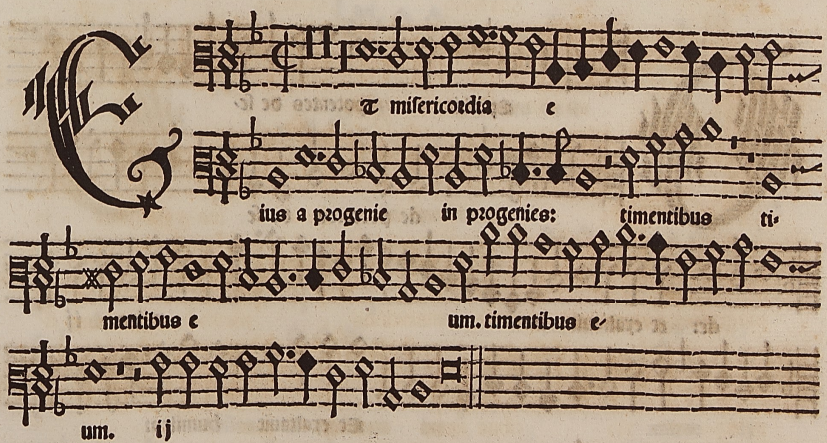 ET misericordia e
ius a progenie in progenies: timentibus ti-
mentibus e um. timentibus e-
um. ij